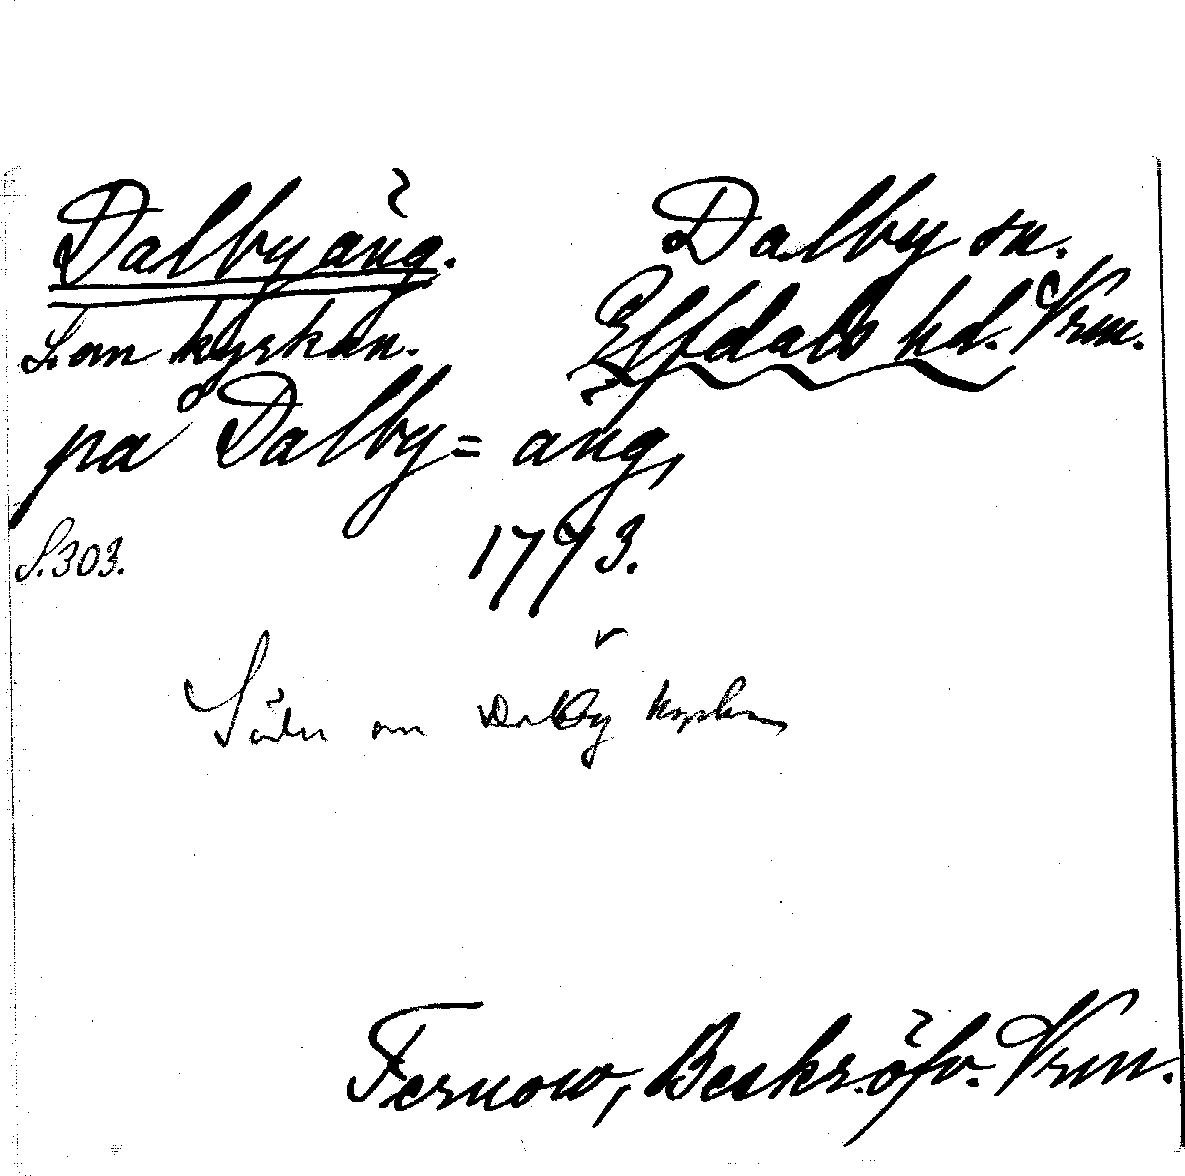 Dalbyäng. Dalby sn.
S. om kyrkan. Elfdals hd. Vrm.
på Dalby= äng,
S. 303. 1773.
Söder om Dalby kyrka
Fernow, Beskr. öfv. Vrm.